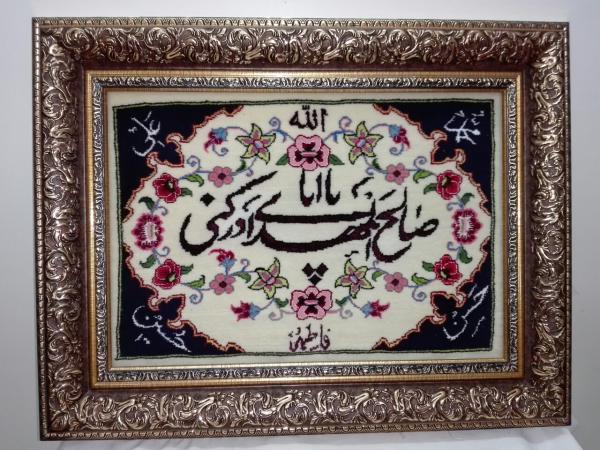 الله
محمد
علی
یا ابا
صالح المهدی ادرکنی
حسن
حسین
فاطمه